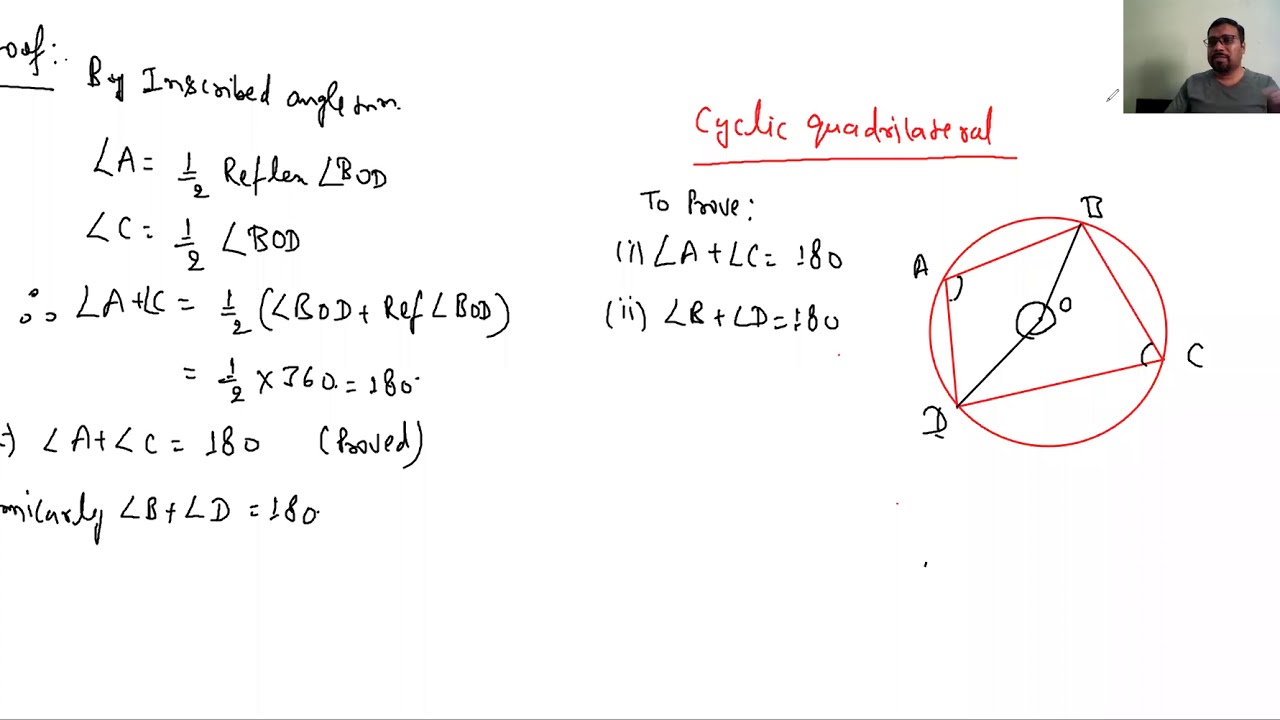 oof:
By Inscribed angle tm.
∠A = 1/2 Reflex ∠BOD
∠C = 1/2 ∠BOD
∴ ∠A+∠C = 1/2 (∠BOD + Ref ∠BOD)
= 1/2 × 360 = 180
∠A+∠C = 180 (Proved)
milarly ∠B+∠D = 180
Cyclic quadrilateral
To Prove:
(i) ∠A+∠C = 180
(ii) ∠B+∠D = 180
B
A
O
C
D